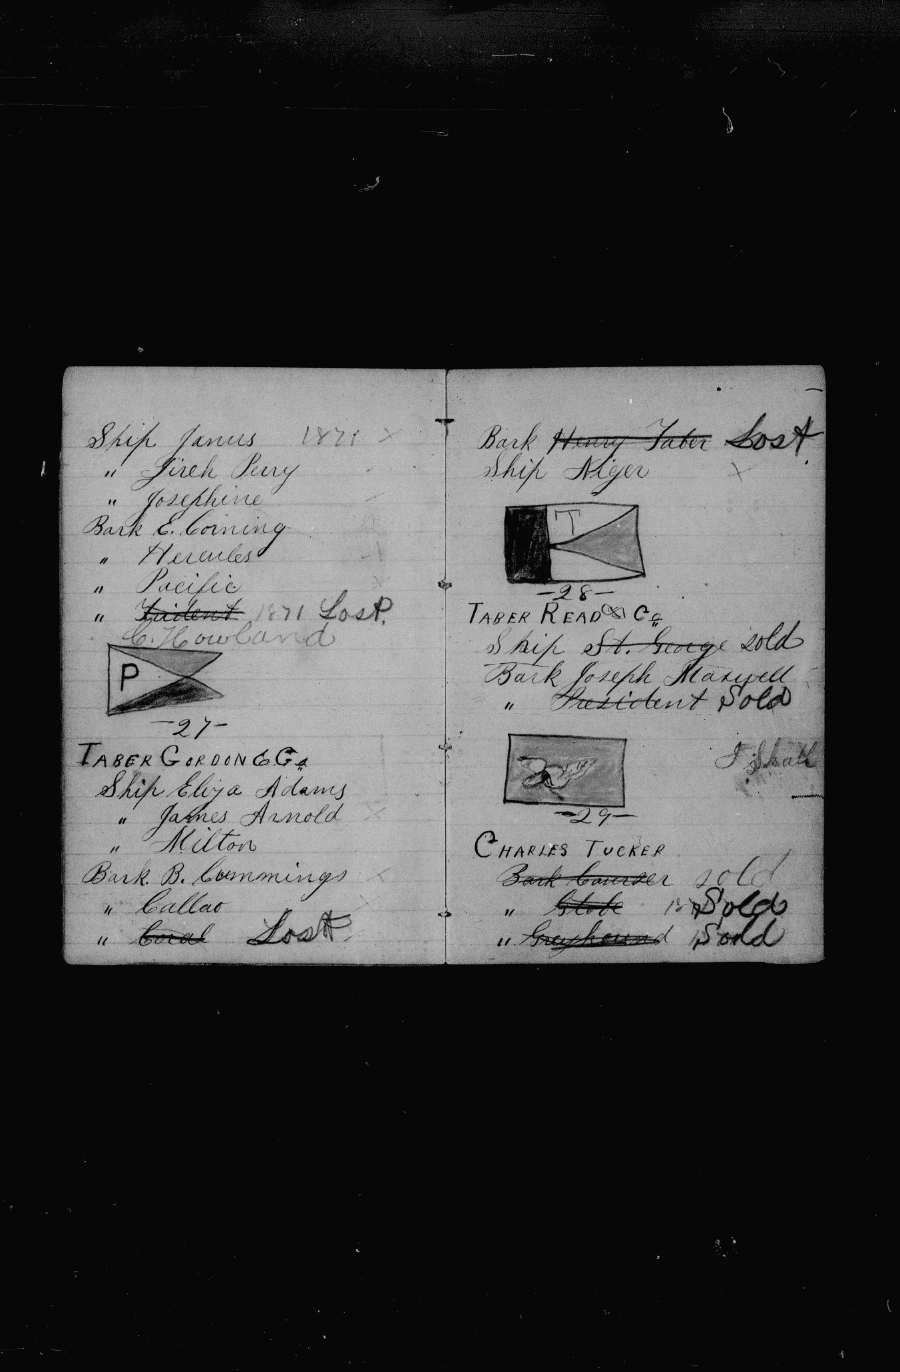 Ship Janus 1871 x
" Jireh Perry
" Josephine
Bark E. Corning
" Hercules
" Pacific
" Trident 1871 Lost.
C. Howland
P
-27-
TABER GORDON & Co.
Ship Eliza Adams
" James Arnold x
" Milton
Bark. B. Cummings x
" Callao
" Coral Lost.
Bark Henry Taber Lost.
Ship Niger x
T
-28-
TABER READ & Co
Ship St. George sold
Bark Joseph Maxwell
" President Sold
-29-
CHARLES TUCKER
Bark Courser sold
" Globe Sold
" Greyhound Sold